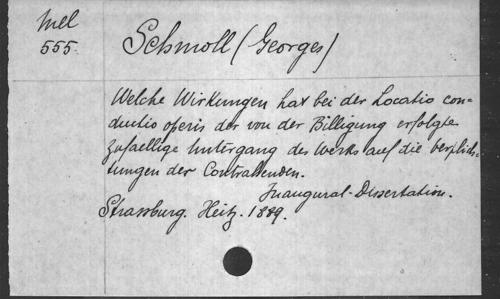 Mel
555.
Schmoll (Georges)
Welche Wirkungen hat bei der Locatio con=
ductio operis der von der Billigung erfolgte
zufaellige Untergang des Werks auf die verplich=
tungen der Contrahenden.
Inaugural-Dissertation.
Strassburg. Heitz. 1889.